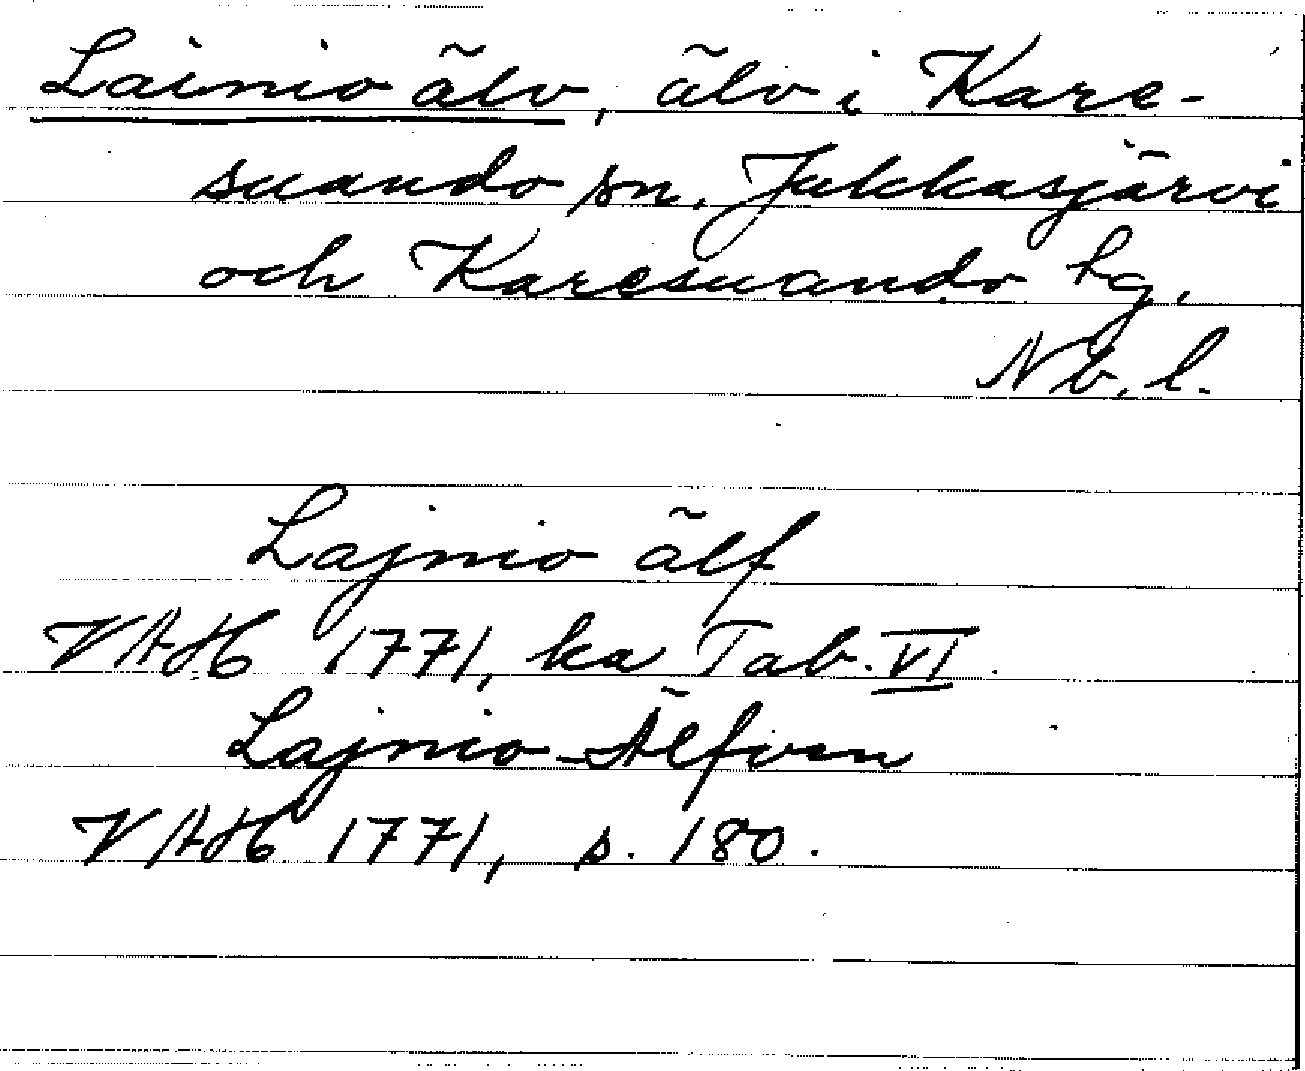 Lainio älv, älv i Kare-
suando sn. Jukkasjärvi
och Karesuando tg,
Nb. l.
Lajnio älf
VAH 1771, ka Tab. VI.
Lajnio-Älfven
VAH 1771, s. 180.